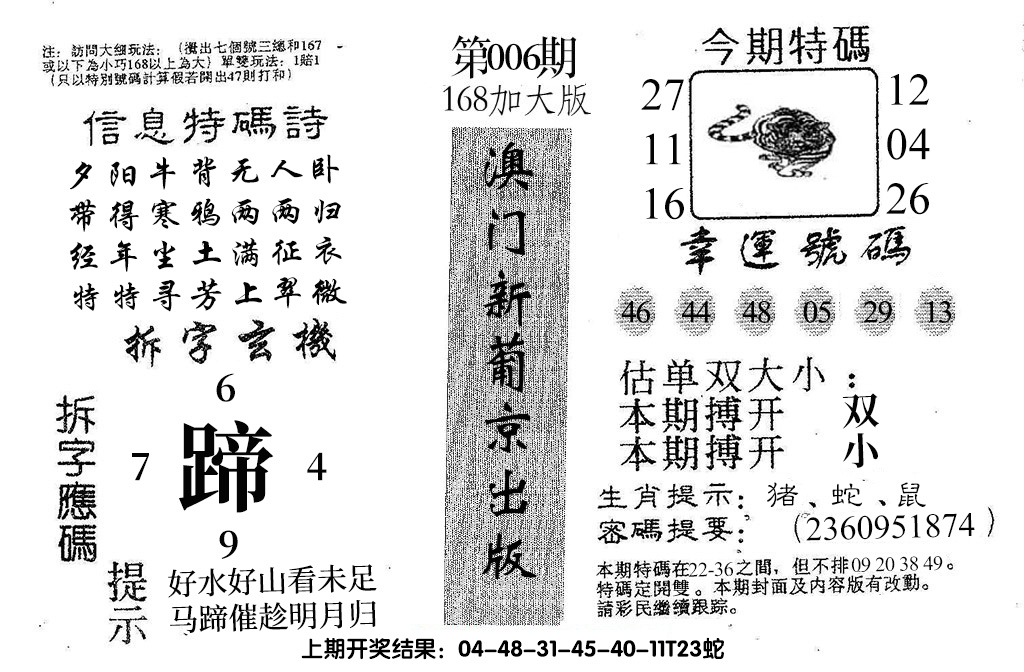 注：訪問大细玩法：（攪出七個號三總和167
或以下為小巧168以上為大）單雙玩法：1賠1
（只以特別號碼計算假若開出47則打和）
信息特碼詩
夕阳牛背无人卧
带得寒鸦两两归
经年尘土满征衣
特特寻芳上翠微
拆字玄機
6
7 蹄 4
9
拆字應碼
提示
好水好山看未足
马蹄催趁明月归
第006期
168加大版
澳门新葡京出版
今期特碼
27 12
11 04
16 26
幸運號碼
46 44 48 05 29 13
估单双大小：
本期搏开 双
本期搏开 小
生肖提示：猪、蛇、鼠
密碼提要：（2360951874）
本期特碼在22-36之間，但不排09 20 38 49。
特碼定開雙。本期封面及内容版有改動。
請彩民繼續跟踪。
上期开奖结果：04-48-31-45-40-11T23蛇